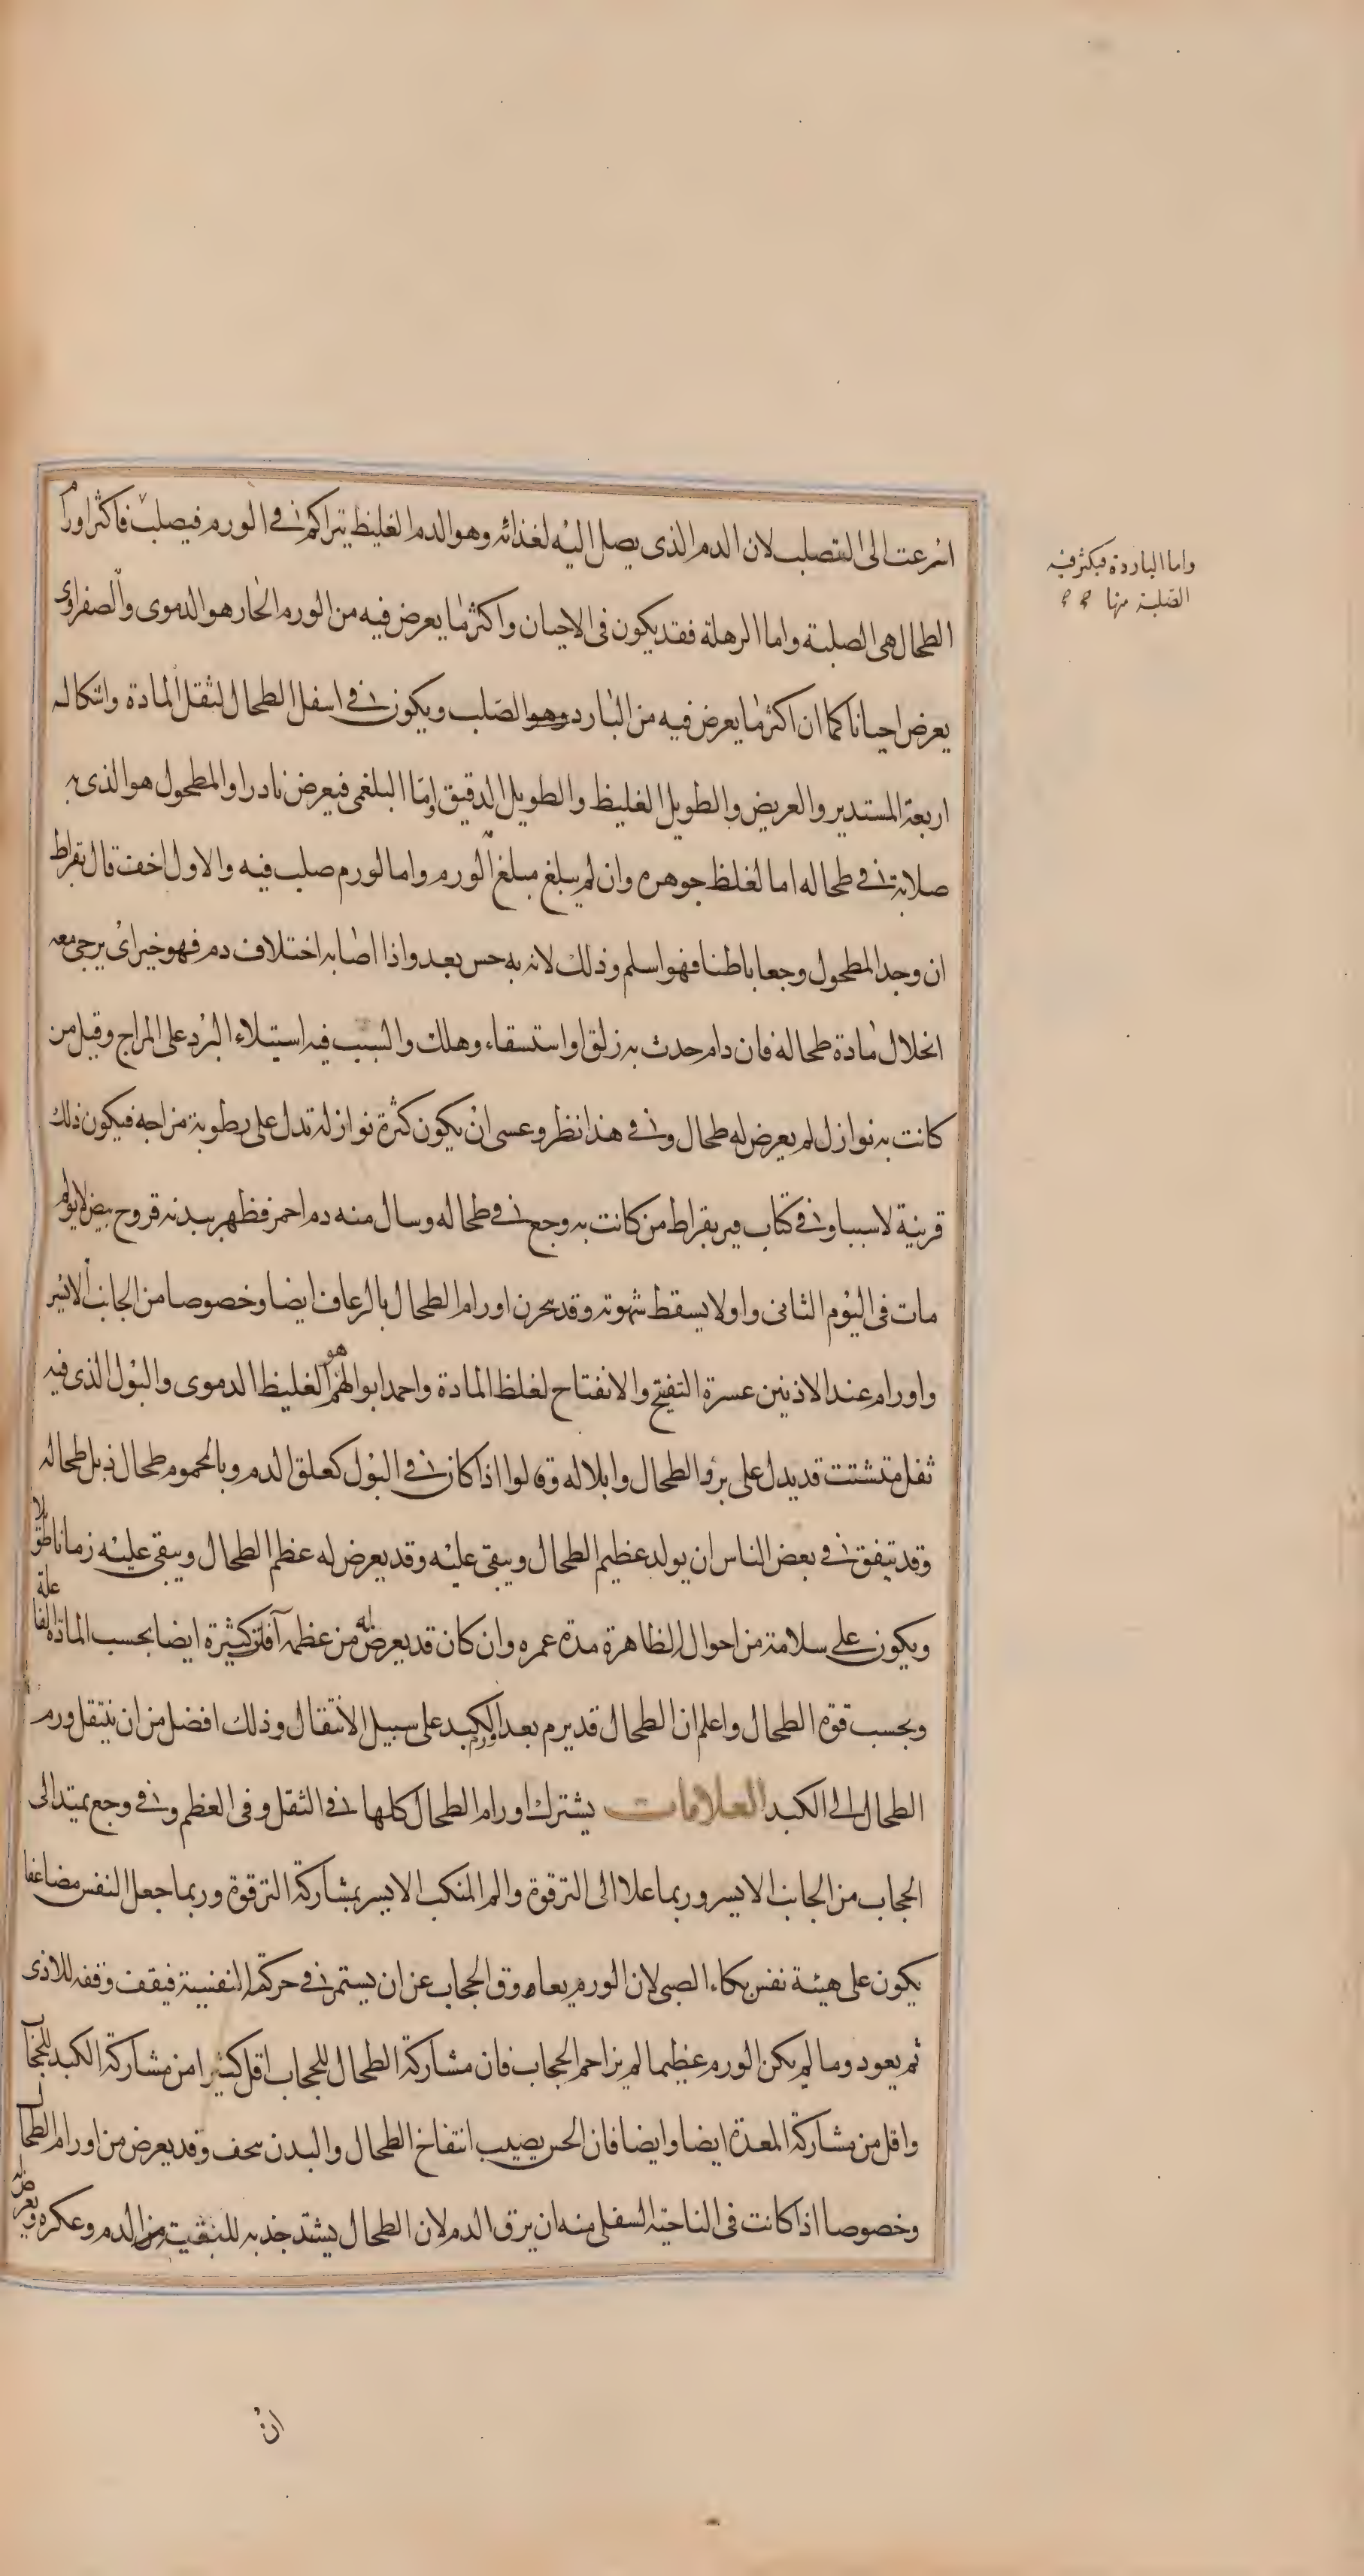 اسرعت الى التصلب لان الدم الذى يصل اليه لغذائه وهو الدم الغليظ يتراكم فى الورم فيصلب فاكثر اورام
الطحال هى الصلبة واما الرهلة فقد يكون فى الاحيان واكثر ما يعرض فيه من الورم الحار هو الدموى والصفراوى
يعرض احيانا كما ان اكثر ما يعرض فيه من البارد وهو الصلب ويكون فى اسفل الطحال لثقل المادة واشكاله
اربعة المستدير والعريض والطويل الغليظ والطويل الدقيق واما البلغمى فيعرض نادرا والمطحول هو الذى به
صلابة فى طحاله اما لغلظ جوهره وان لم يبلغ مبلغ الورم واما لورم صلب فيه والاول اخف قال بقراط
ان وجد المطحول وجعا باطنا فهو اسلم وذلك لانه به حس بعد واذا اصابه اختلاف دم فهو خير اى يرجى معه
انحلال مادة طحاله فان دام حدث به زلق او استسقاء وهلك والسبب فيه استيلاء البرد على المزاج وقيل من
كانت به نوازل لم يعرض له طحال وفى هذا نظر وعسى ان يكون كثرة نوازله تدل على رطوبة مزاجه فيكون ذلك
قرينة لا سببا وفى كتاب بقراط من كانت به وجع فى طحاله وسال منه دم احمر فظهر ببدنه قروح بيض لا يولم
مات فى اليوم الثانى واولا يسقط شهوته وقد بحرن اورام الطحال بالرعاف ايضا وخصوصا من الجانب الايسر
واورام عند الاذنين عسرة التفتح والانفتاح لغلظ المادة واحمد ابوالهم هو الغليظ الدموى والبول الذى فيه
ثفل متشتت قد يدل على برؤ الطحال وابلاله وقالوا اذا كان فى البول كعلق الدم وبالمحموم طحال ذبل طحاله
وقد يتفق فى بعض الناس ان يولد عظيم الطحال ويبقى عليه وقد يعرض له عظم الطحال ويبقى عليه زمانا طويلا
ويكون على سلامة من احواله الظاهرة مدة عمره وان كان قد يعرض له من عظمه آفات كثيرة ايضا بحسب المادة الفاعلة
وبحسب قوة الطحال واعلم ان الطحال قد يرم بعد ورم الكبد على سبيل الانتقال وذلك افضل من ان ينتقل ورم
الطحال الى الكبد العلامات يشترك اورام الطحال كلها فى الثقل وفى العظم وفى وجع يمتد الى
الحجاب من الجانب الايسر وربما علا الى الترقوة والم المنكب الايسر بمشاركة الترقوة وربما جعل النفس مضاعفا
يكون على هيئة نفس بكاء الصبى لان الورم يعاوق الحجاب عن ان يستمر فى حركته النفسية فيقف وقفة للاذى
ثم يعود وما لم يكن الورم عظيما لم يزاحم الحجاب فان مشاركة الطحال للحجاب اقل كثيرا من مشاركة الكبد للحجاب
واقل من مشاركة المعدة ايضا وايضا فان الحس يصيب انتفاخ الطحال والبدن نحف وقد يعرض من اورام الطحال
وخصوصا اذا كانت فى الناحية السفلى منه ان يرق الدم لان الطحال يشتد جذبه للتنقية من الدم وعكره ويعرض له
واما الباردة فيكثر فيه
الصلبة منها
ان